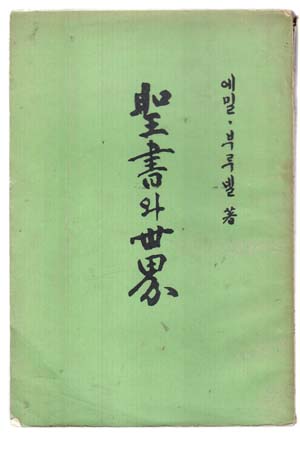 에밀·부루넬 著
聖書와 世界